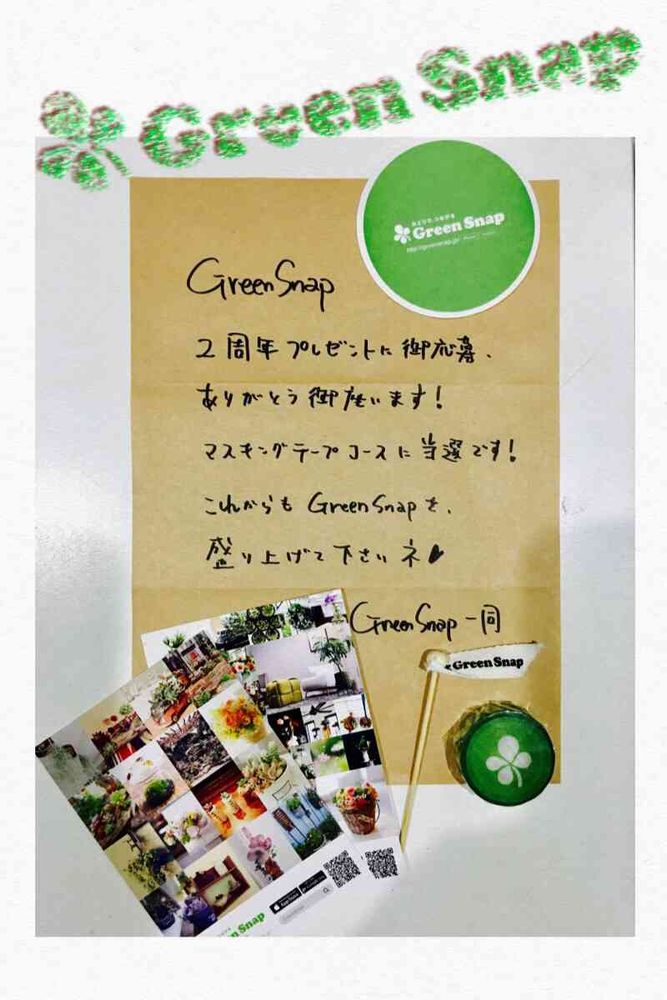 Green Snap
みどりで、つながる
Green Snap
GreenSnap
2周年プレゼントに御応募、
ありがとう御座います!
マスキングテープコースに当選です!
これからも GreenSnapを、
盛り上げて下さいネ♥
GreenSnap一同
Green Snap
Green Snap